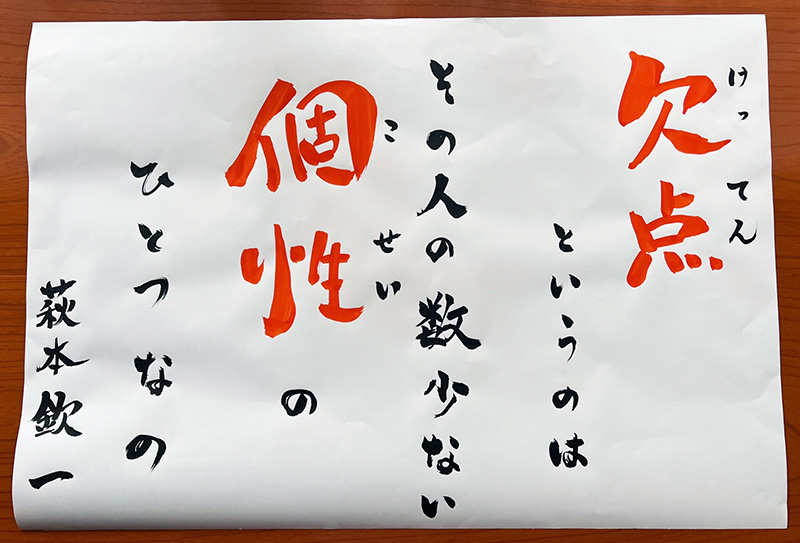 欠点
けってん
というのは
その人の数少ない
個性の
こせい
ひとつなの
萩本欽一